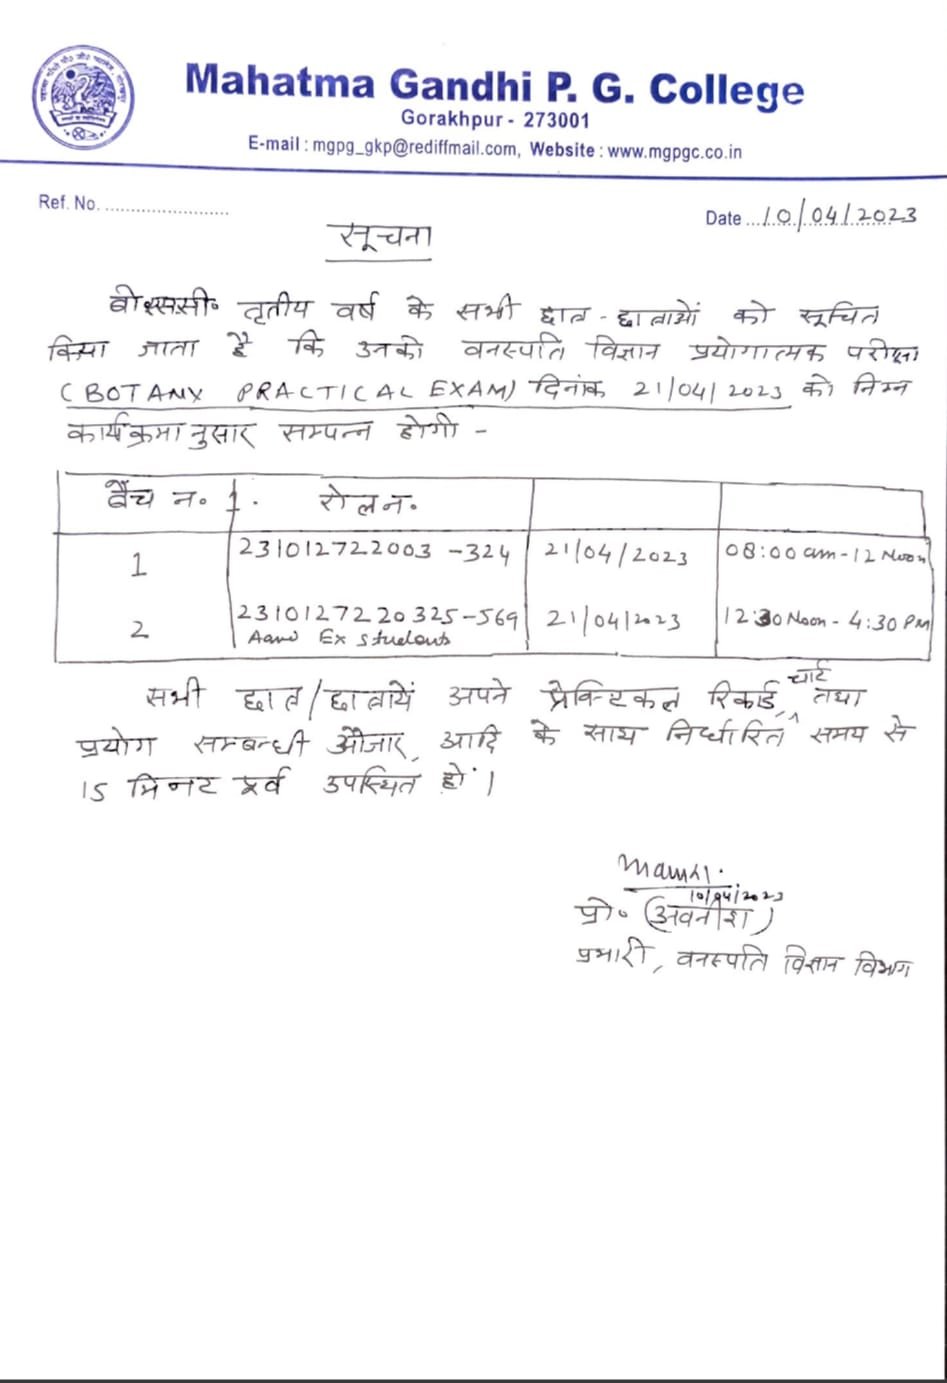 Mahatma Gandhi P. G. College
Gorakhpur - 273001
E-mail : mgpg_gkp@rediffmail.com, Website : www.mgpgc.co.in
Ref. No. ........................
Date ...10/04/2023
सूचना
बी०एससी० तृतीय वर्ष के सभी छात्र - छात्राओं को सूचित
किया जाता है कि उनकी वनस्पति विज्ञान प्रयोगात्मक परीक्षा
(BOTANY PRACTICAL EXAM) दिनांक 21/04/2023 को निम्न
कार्यक्रमानुसार सम्पन्न होगी -
बैच न० 1. रोल न०
1 231012722003 -324 21/04/2023 08:00 am - 12 Noon
2 2310127220325-569 21/04/2023 12:30 Noon - 4:30 PM
Aand Ex Students
सभी छात्र/छात्रायें अपने प्रेक्टिकल रिकार्ड, चार्ट तथा
प्रयोग सम्बन्धी औजार, आदि के साथ निर्धारित समय से
15 मिनट पूर्व उपस्थित हों।
10/04/2023
प्रो० (अवनीश)
प्रभारी, वनस्पति विज्ञान विभाग